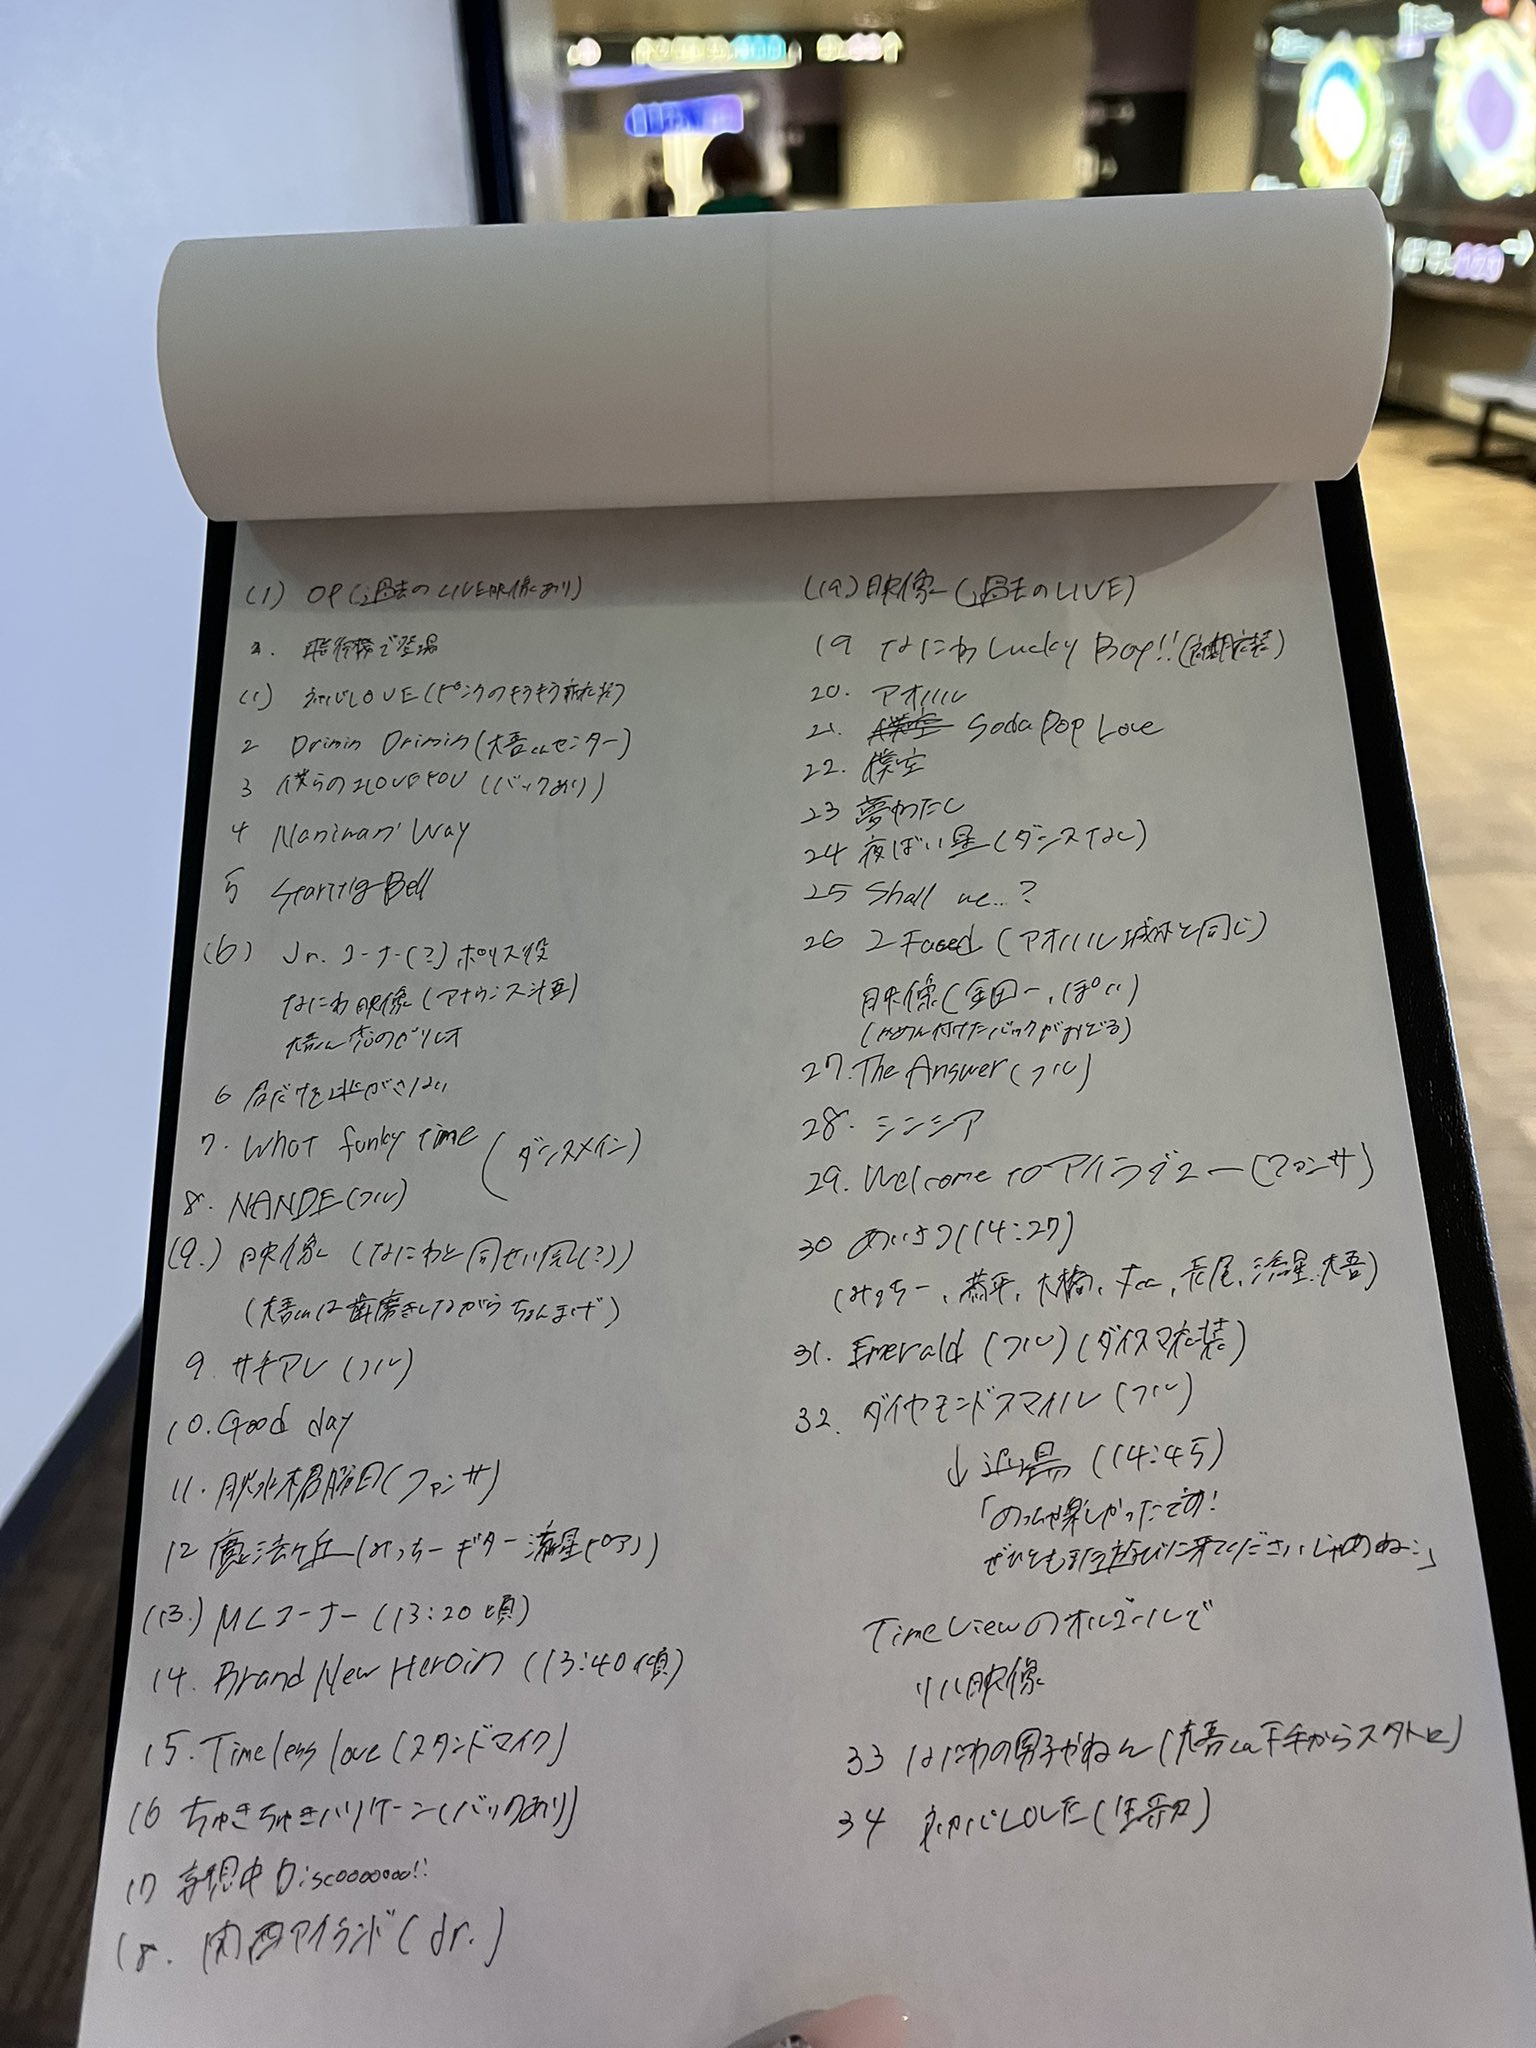 (1) OP(過去のLIVE映像あり)
2. 飛行機で登場
(1) ねバじLOVE(ピンクのもうもう
2 Drimin Drimin(大吾くんセンター)
3 僕らのILOVEYOU (バックあり)
4 Naniwan' Way
5 Starting Bell
(6) Jr.コーナー(?)ポリス役
なにわ映像(アナウンス
大吾くん恋のピリオ
6 君だけを逃がさない
7. What funky time (ダンスメイン)
8. NANDE(フル)
(9.) 映像 (なにわと同せい
(大吾くんは歯磨きしながらちょんまげ)
9. サチアレ(フル)
10. Good day
11. 既決木曜朝日(ファンサ)
12 魔法ヶ丘(みっちーギター 流星ピアノ)
(13.) MCコーナー(13:20頃)
14. Brand New Heroin (13:40頃)
15. Timeless love(スタンドマイク)
16 ちゅきちゅきハリケーン(バックあり)
17 妄想中Discooooooo!!
18. 関西アイランド(Jr.)
(19) 映像(過去のLIVE)
19 なにわLucky Boy!!(初期衣装)
20. アオハル
21. Soda Pop Love
22. 僕空
23 夢わたし
24 夜ばい星(ダンスなし)
25 Shall we…?
26 2 Faced (アオハル 同じ)
映像(金田一っぽい)
(かめん付けたバックがおどる)
27. The Answer(フル)
28. シンシア
29. Welcome to アイラデュー(ファンサ)
30 あいさつ(14:27)
(みっちー、恭平、大橋、丈くん、長尾、流星、大吾)
31. Emerald (フル)(ダイスマ衣装)
32. ダイヤモンドスマイル(フル)
↓退場(14:45)
「めっちゃ楽しかったです!
ぜひともまた遊びに来てください
Time Viewのオルゴールで
リハ映像
33 なにわの男子やねん(大吾くん下手からスタトロ)
34 ねバじLOVE(